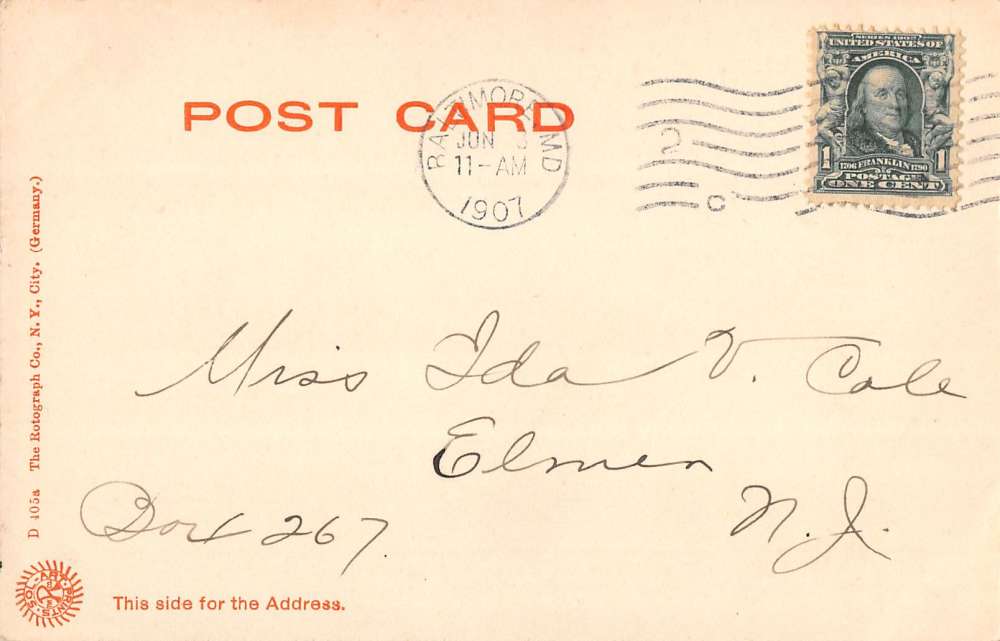 POST CARD
BALTIMORE, MD
JUN
11-AM
1907
2
C
SERIES 1902
UNITED STATES OF
AMERICA
1 1706 FRANKLIN 1790 1
POSTAGE
ONE CENT
Miss Ida V. Cole
Elmer
N. J.
Box 267.
D 405a The Rotograph Co., N. Y., City. (Germany.)
SOL-ART PRINTS
This side for the Address.